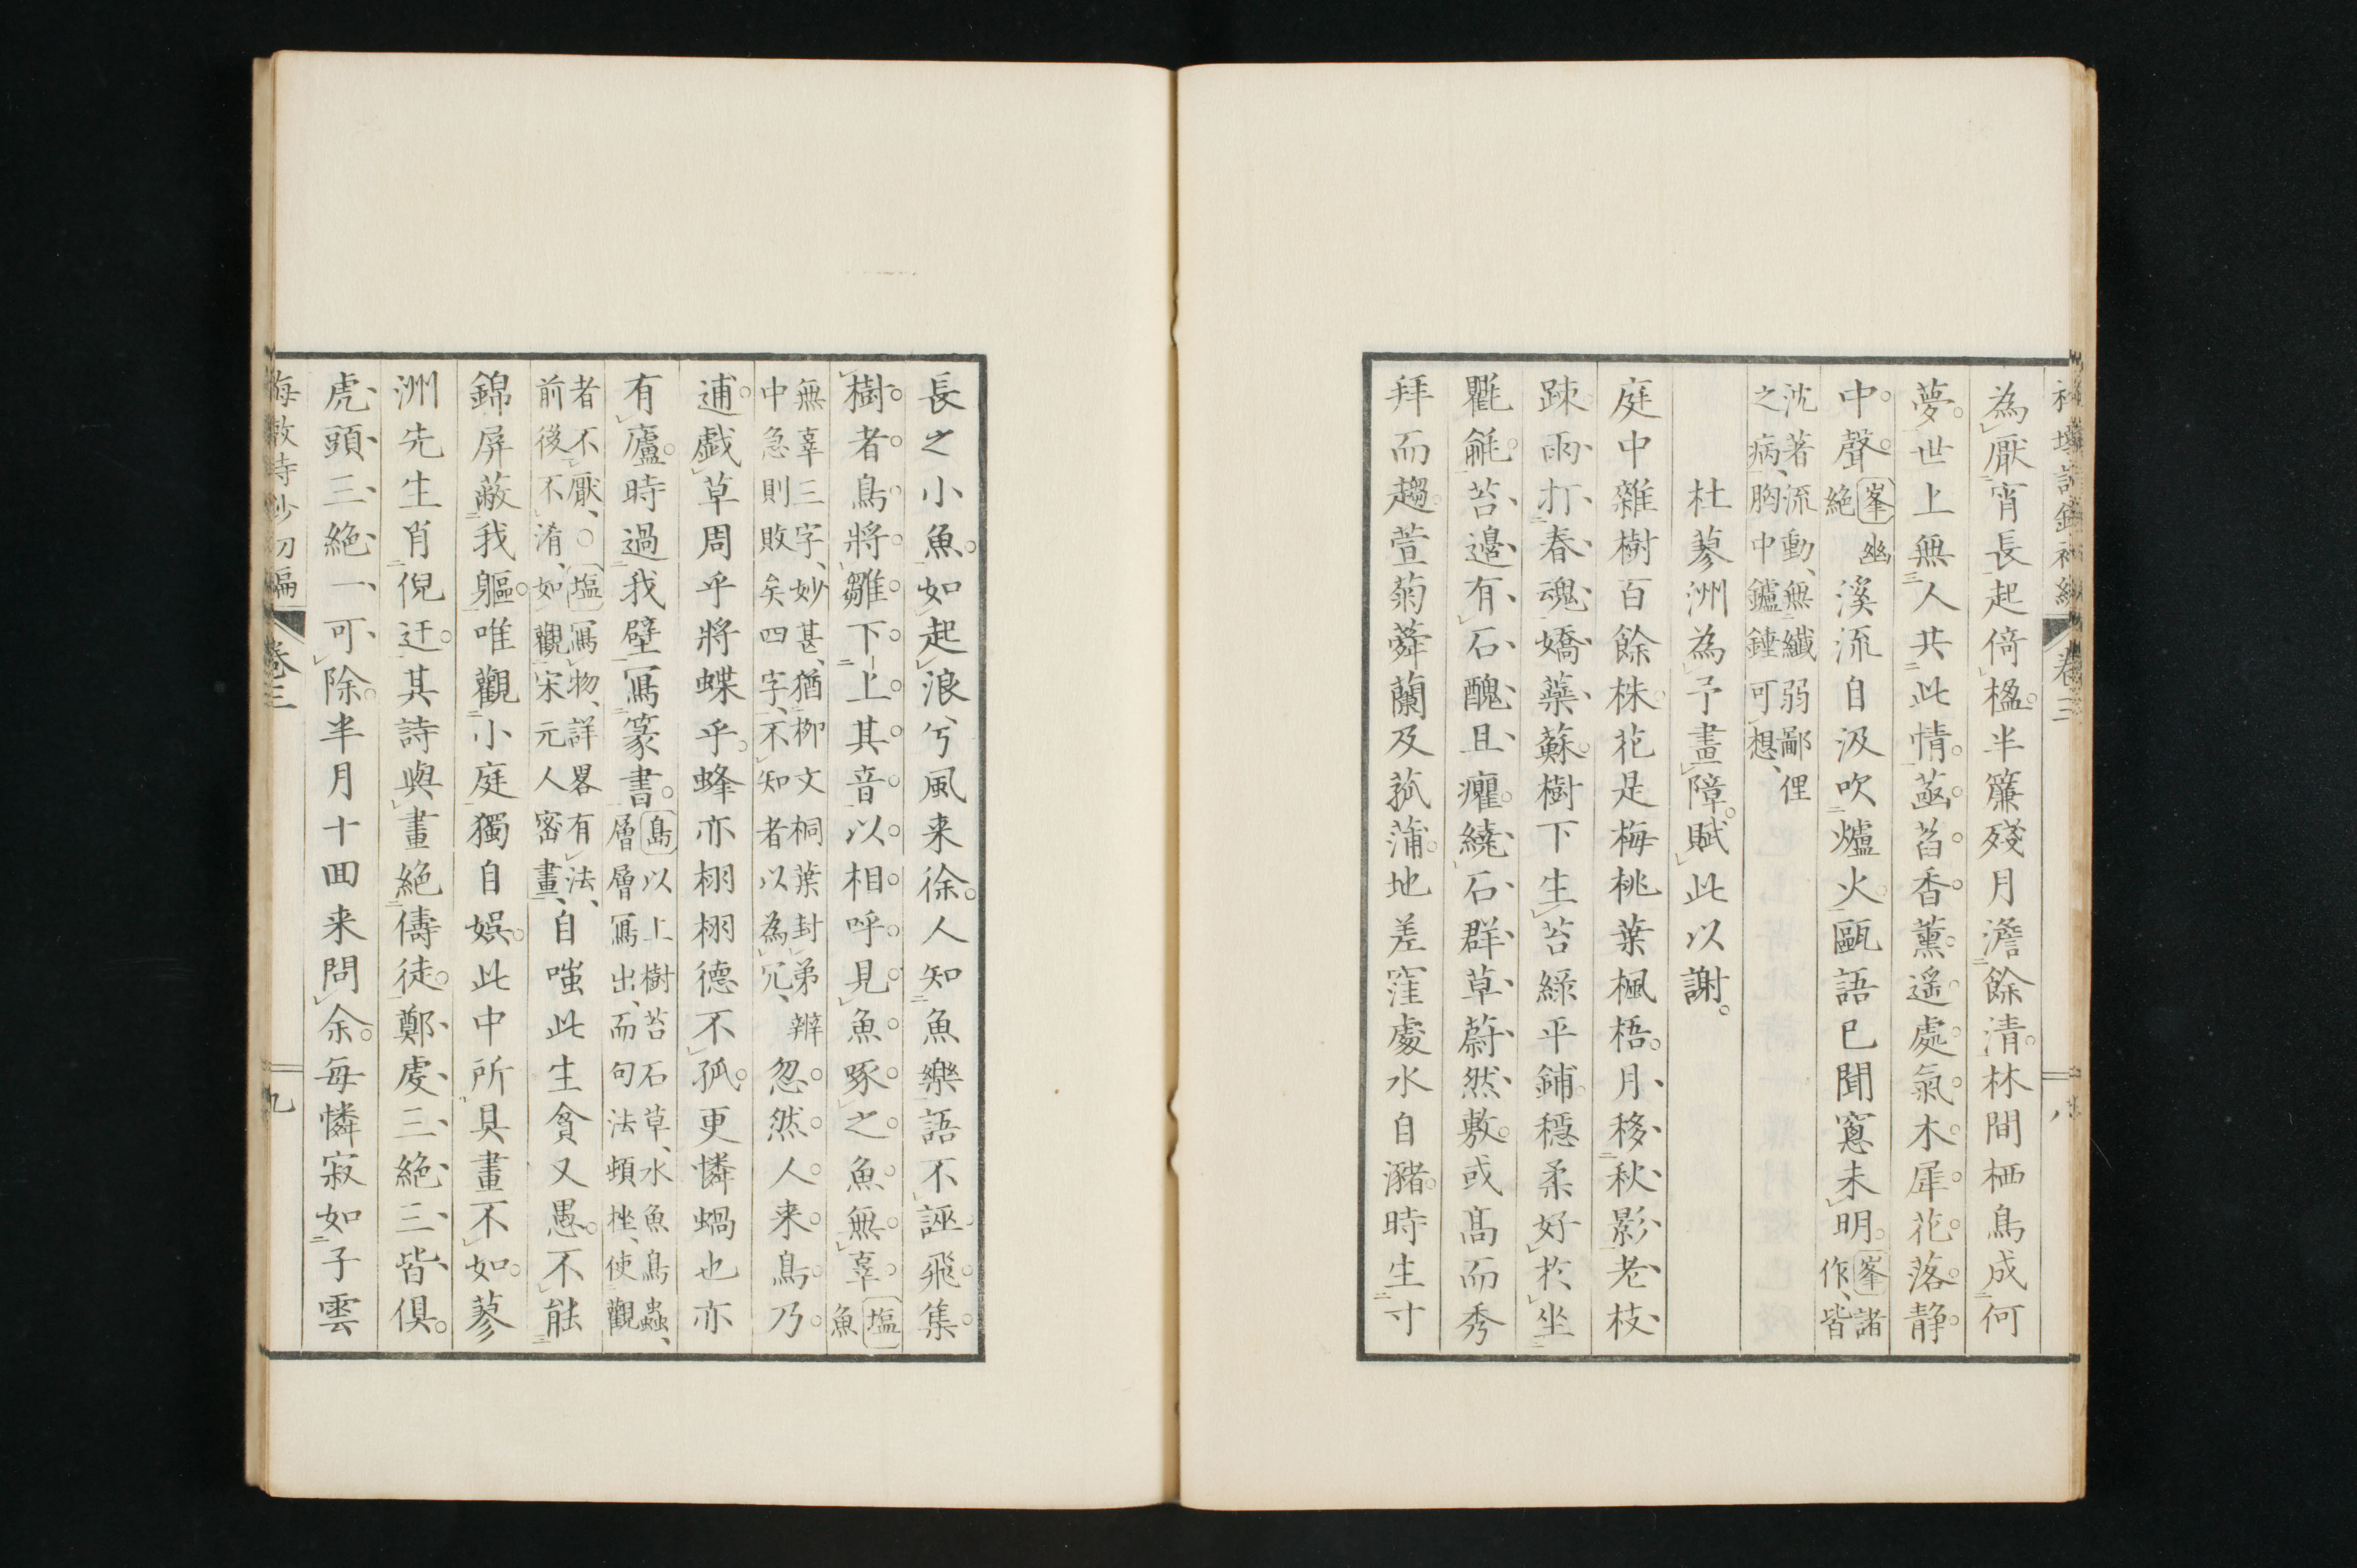 為厭宵長起倚楹半簾殘月澹餘清林間栖鳥成何
夢世上無人共此情菡萏香薰遙處氣木犀花落静
中聲
峯幽
絶
溪流自汲吹爐火甌語已聞窻未明
峯諸
作皆
沈著流動無纎弱鄙俚
之病胸中鑪錘可想
杜蓼洲為予畫障賦此以謝
庭中雜樹百餘株花是梅桃葉楓梧月移秋影老枝
踈雨打春魂嬌蘂蘇樹下生苔緑平鋪穏柔好於坐
氍毹苔邊有石醜且癯繞石群草蔚然敷或髙而秀
拜而趨萱菊蕣蘭及菰蒲地差窪處水自瀦時生寸
長之小魚如起浪兮風来徐人知魚樂語不誣飛集
樹者鳥將雛下上其音以相呼見魚啄之魚無辜
塩
魚
無辜三字妙甚猶柳文桐葉封弟辨
中急則敗矣四字不知者以為冗
忽然人来鳥乃
逋戯草周乎將蝶乎蜂亦栩栩德不孤更憐蝸也亦
有廬時過我壁寫篆書
島以上樹苔石草水魚鳥蟲
層層寫出而句法頓挫使觀
者不厭○塩寫物詳畧有法
前後不淆如觀宋元人密畫
自嗤此生貪又愚不能
錦屏蔽我軀唯觀小庭獨自娯此中所具畫不如蓼
洲先生肖倪迂其詩與畫絶儔徒鄭虔三絶三皆俱
虎頭三絶一可除半月十回来問余每憐寂如子雲
卷三
九